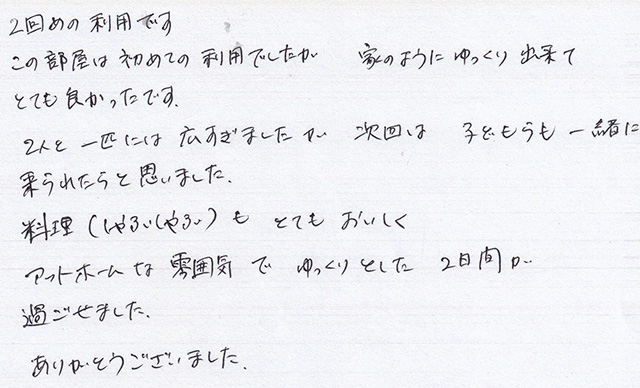 2回めの利用です
この部屋は初めての利用でしたが 家のようにゆっくり出来て
とても良かったです.
2人と一匹には広すぎましたが 次回は 子どもらも一緒に
来られたらと思いました.
料理(しゃぶしゃぶ)も とても おいしく
アットホームな 雰囲気で ゆっくりとした 2日間が
過ごせました.
ありがとうございました.